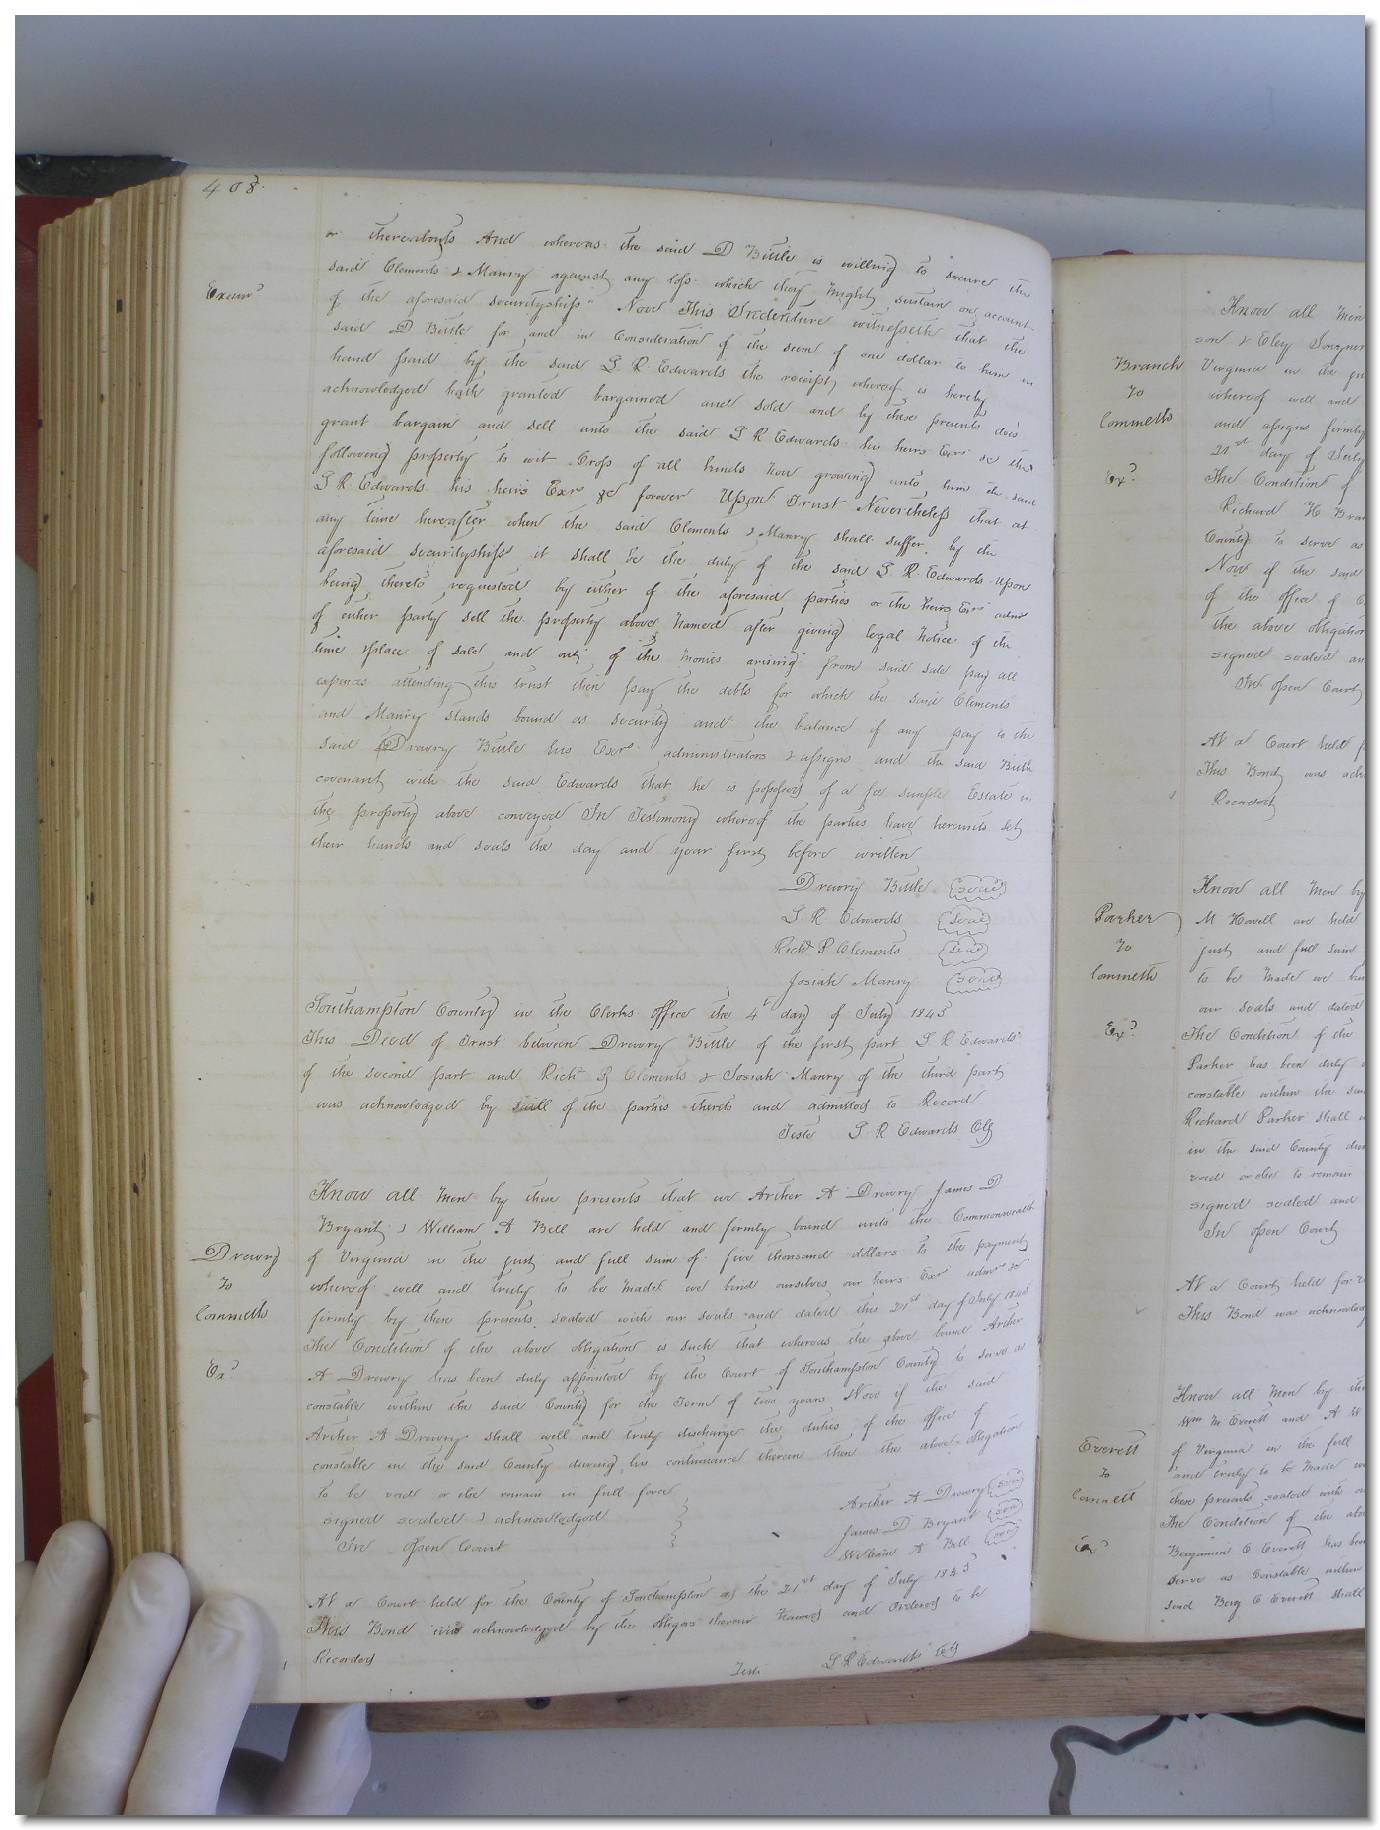 408
or thereabouts And whereas the said D Bittle is willing to secure the
Examd
said Clements & Manry against any loss which they might sustain on account
of the aforesaid securityships Now This Indenture witnesseth that the
said D Bittle for and in Consideration of the sum of one dollar to him in
hand paid by the said L R Edwards the receipt whereof is hereby
acknowledged hath granted bargained and sold and by these presents does
grant bargain and sell unto the said L R Edwards his heirs Exrs &c the
following property to wit Crops of all kinds now growing unto him the said
L R Edwards his heirs Exrs &c forever Upon Trust Nevertheless that at
any time hereafter when the said Clements & Manry shall suffer by the
aforesaid securityships it shall be the duty of the said L R Edwards upon
being thereto requested by either of the aforesaid parties or the heirs Exrs admr
of either party sell the property above named after giving legal notice of the
time & place of sale and out of the monies arising from said sale pay all
expenses attending this trust then pay the debts for which the said Clements
and Manry stands bound as security and the balance if any pay to the
said Drewry Bittle his Exrs administrators & assigns and the said Bittle
covenant with the said Edwards that he is possessed of a fee simple Estate in
the property above conveyed In Testimony whereof the parties have hereunto set
their hands and seals the day and year first before written
Drewry Bittle seal
L R Edwards seal
Richd P Clements seal
Josiah Manry seal
Southampton County in the Clerks office the 4th day of July 1845
This Deed of Trust between Drewry Bittle of the first part L R Edwards
of the second part and Richd P Clements & Josiah Manry of the third part
was acknowledged by all of the parties thereto and admitted to Record
Teste L R Edwards Clk
Know all men by these presents that we Archer A Drewry James D
Bryant & William A Bell are held and firmly bound unto the Commonwealth
Drewry
To
Commwlth
Ex?
of Virginia in the just and full sum of five thousand dollars to the payment
whereof well and truly to be made we bind ourselves our heirs Exrs admrs &c
firmly by these presents sealed with our seals and dated this 21st day of July 1845
The Condition of the above obligation is such that whereas the above bound Archer
A Drewry has been duly appointed by the Court of Southampton County to serve as
constable within the said County for the Term of two years Now if the said
Archer A Drewry shall well and truly discharge the duties of the office of
constable in the said County during his continuance therein then the above obligation
to be void or else remain in full force
signed sealed & acknowledged
In open Court
Archer A Drewry seal
James D Bryant seal
William A Bell seal
At a Court held for the County of Southampton at the 21st day of July 1845
This Bond was acknowledged by the obligors therein named and ordered to be
Recorded
Teste L R Edwards Clk
Know all men
son & Eley
Branch
To
Commwlth
Ex?
Virginia in the
whereof well and
and assigns firmly
21st day of July
The Condition of
Richard H
County to serve as
Now if the said
of the office of
the above obligation
signed sealed
In open Court
At a Court held
This Bond was
Recorded
Know all men by
Parker
To
Commwlth
Ex?
M Howell are held
just and full sum
to be made we
our seals and dated
The Condition of the
Parker has been duly
constable within the
Richard Parker shall
in the said County
void or else to remain
signed sealed and
In open Court
At a Court held for
This Bond was acknowledged
Know all men by
Wm M Everett and A W
Everett
To
Commwlth
Ex?
of Virginia in the full
and truly to be made
these presents sealed with
The Condition of the
Benjamin C Everett has been
serve as Constable within
said Benj C Everett shall